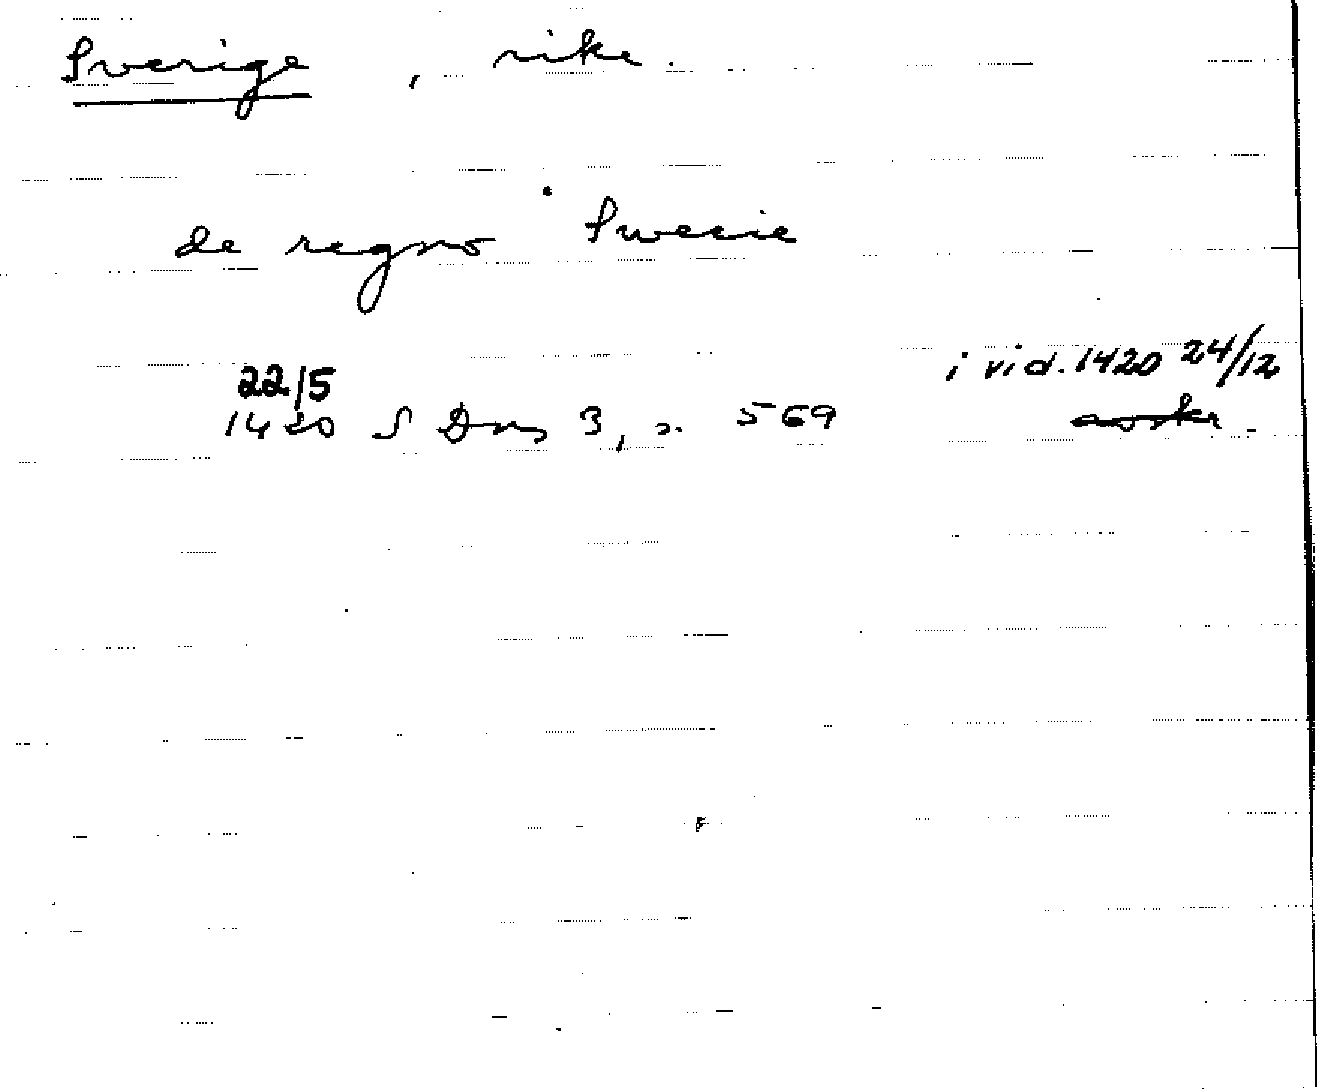 Sverige, rike.
de regno Swecie
22/5 i vid. 1420 24/12
1420 S Dns 3, s. 569 avskr.